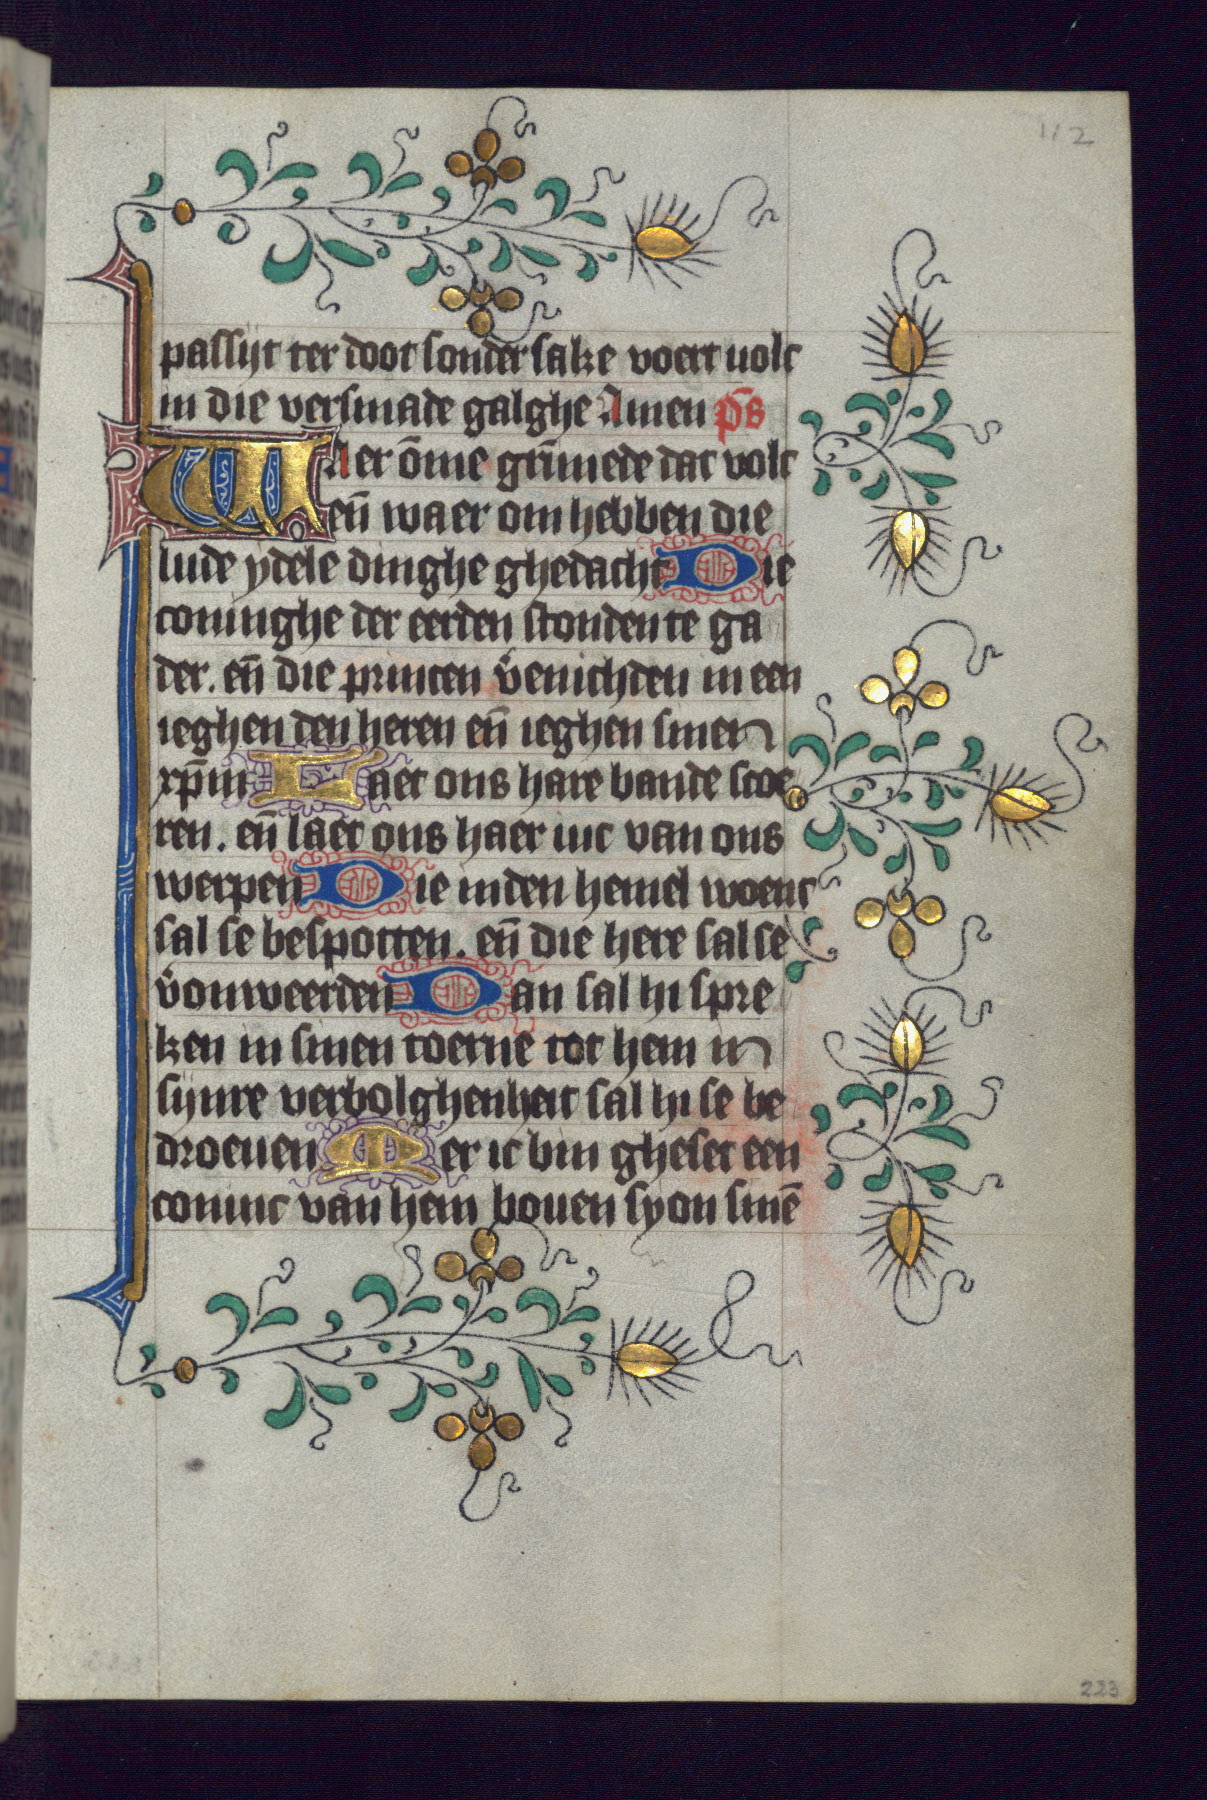 112
passijt ter doot sonder sake voert volc
in die versmade galghe Amen p̄s
WAer ōme gr̄mede dat volc
en̄ waer om hebben die
lude ydele dinghe ghedacht Die
coninghe der eerden stonden te ga
der. en̄ die princen v̾enichden in een
ieghen den heren en̄ ieghen sinen
xp̄m Laet ons hare bande stoe
ren. en̄ laet ons haer iuc van ons
werpen Die inden hemel woent
sal se bespotten. en̄ die here sal se
v̾onweerden Dan sal hi spre
ken in sinen toerne tot hem in
sijnre verbolghenheit sal hi se be
droeuen Mer ic bin gheset een
coninc van hem bouen syon sinē
223